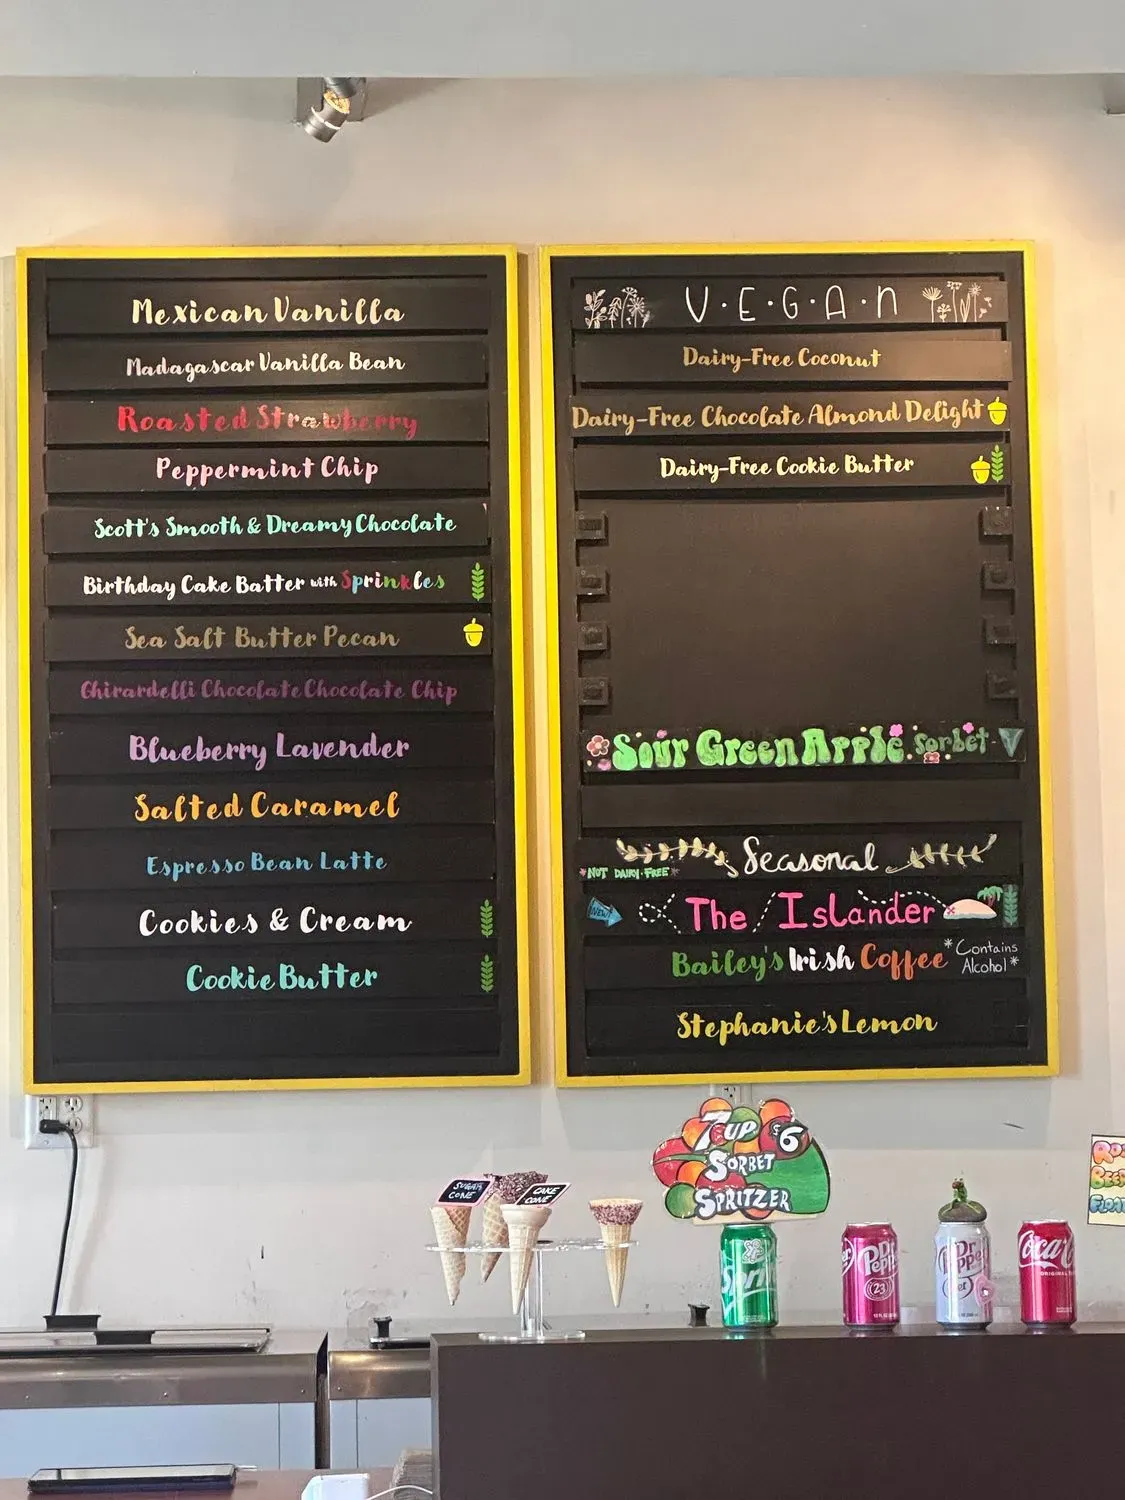 Mexican Vanilla
Madagascar Vanilla Bean
Roasted Strawberry
Peppermint Chip
Scott's Smooth & Dreamy Chocolate
Birthday Cake Batter with Sprinkles
Sea Salt Butter Pecan
Ghirardelli Chocolate Chocolate Chip
Blueberry Lavender
Salted Caramel
Espresso Bean Latte
Cookies & Cream
Cookie Butter
V·E·G·A·N
Dairy-Free Coconut
Dairy-Free Chocolate Almond Delight
Dairy-Free Cookie Butter
Sour Green Apple Sorbet V
Seasonal
*NOT DAIRY-FREE*
NEW! The Islander
Bailey's Irish Coffee *Contains Alcohol*
Stephanie's Lemon
7UP $6
SORBET
SPRITZER
SUGAR CONE
CAKE CONE
Dr Pepper
23
Dr Pepper
Coca
ORIGINAL